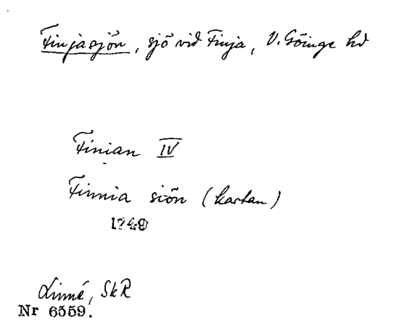 Finjasjön, sjö vid Finja, V. Göinge hd
Finian IV
Finnia siön (kartan)
1749
Linné, SkR
Nr 6559.